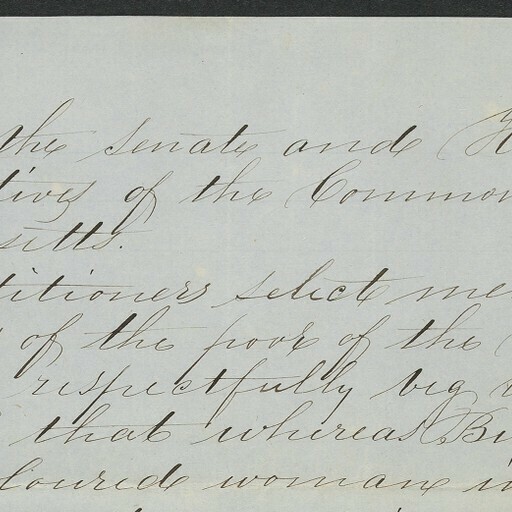 the senate and H
tives of the Common
setts.
titioners select me
of the poor of the
respectfully beg
that whereas Bu
loured woman in